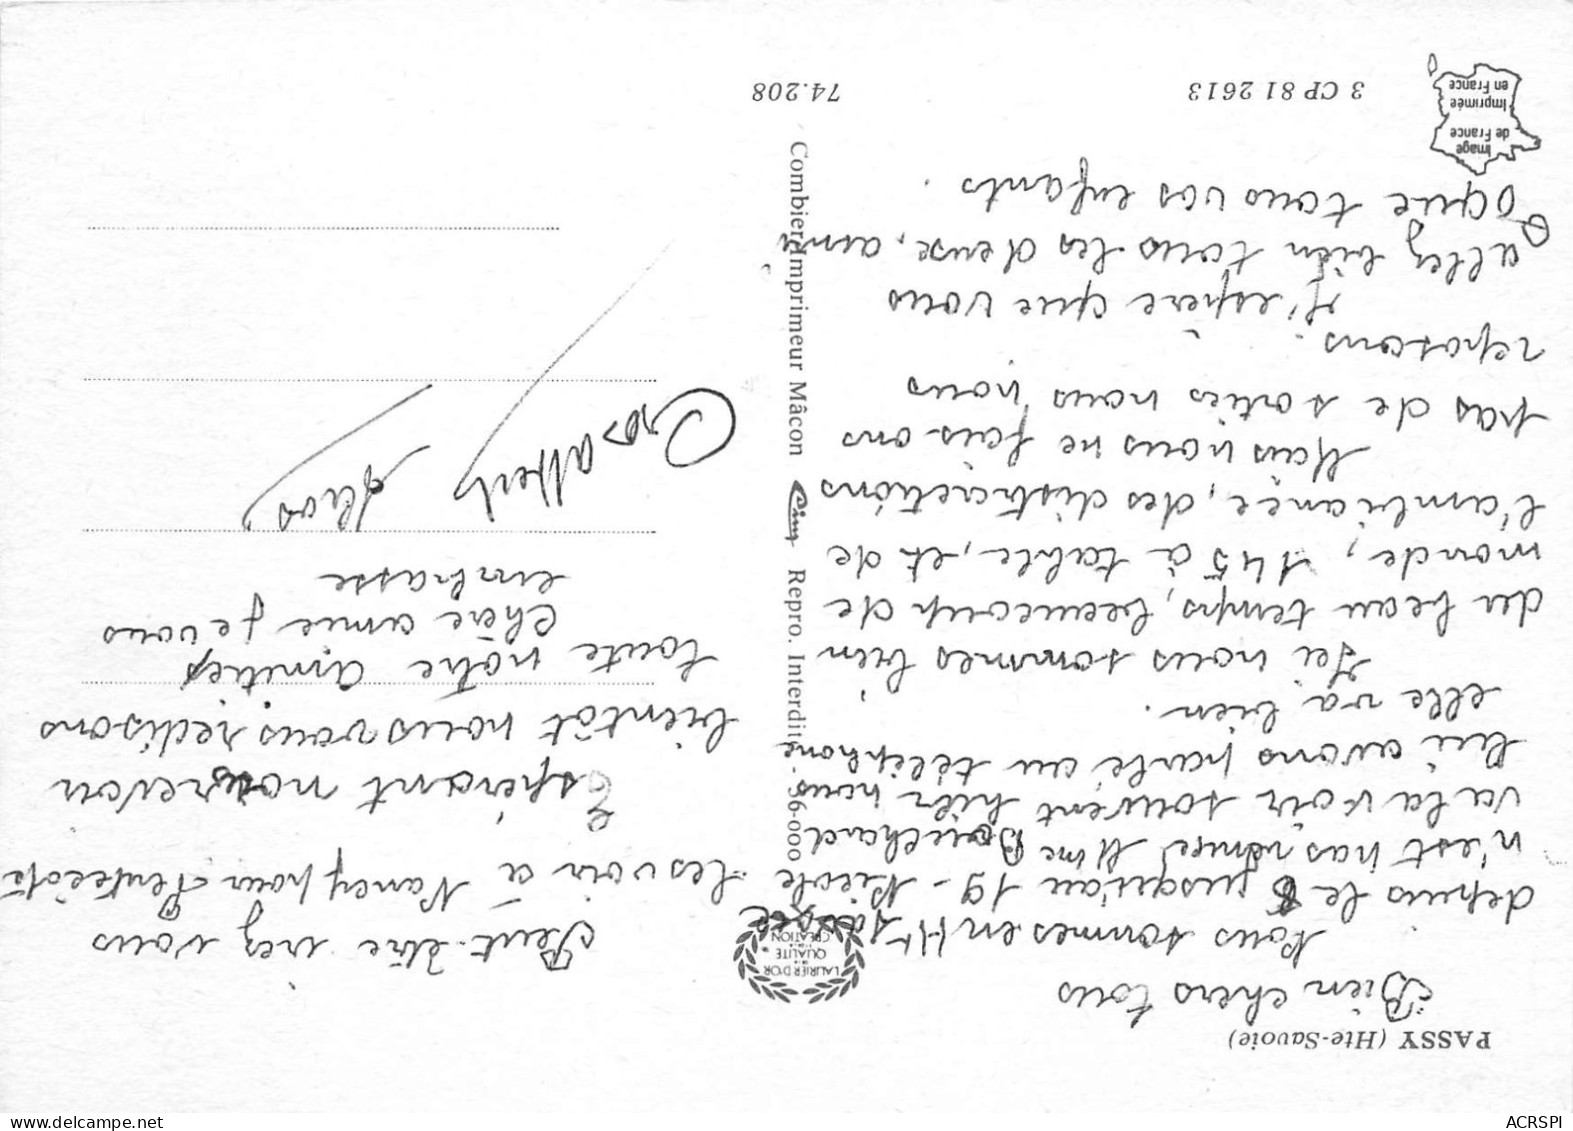 PASSY (Hte-Savoie)
Bien chers tous
Nous sommes en Hte Savoie
depuis le 5 jusqu'au 19 - Nicole
n'est pas venue, Mme
va la voir souvent hier nous
lui avons parlé au téléphone.
elle va bien.
Ici nous sommes bien
du beau temps, beaucoup de
monde, 145 à table, et de
l'ambiance, des distractions
Mais nous ne fais-ons
pas de sorties nous nous
reposons.
J'espère que vous
allez bien tous les deux, ainsi
que tous vos enfants.
3 CP 81 2613
74.208
Image
de France
Imprimée
en France
Combier Imprimeur Mâcon Cim Repro. Interdite. 56-000
LAURIER D'OR
DE LA
QUALITE
DE LA
CREATION
Peut-être irez vous
les voir à Nancy pour Pentecôte
Espérant nous revoir
bientôt nous vous redisons
toute notre amitiés
Chère amie je vous
embrasse